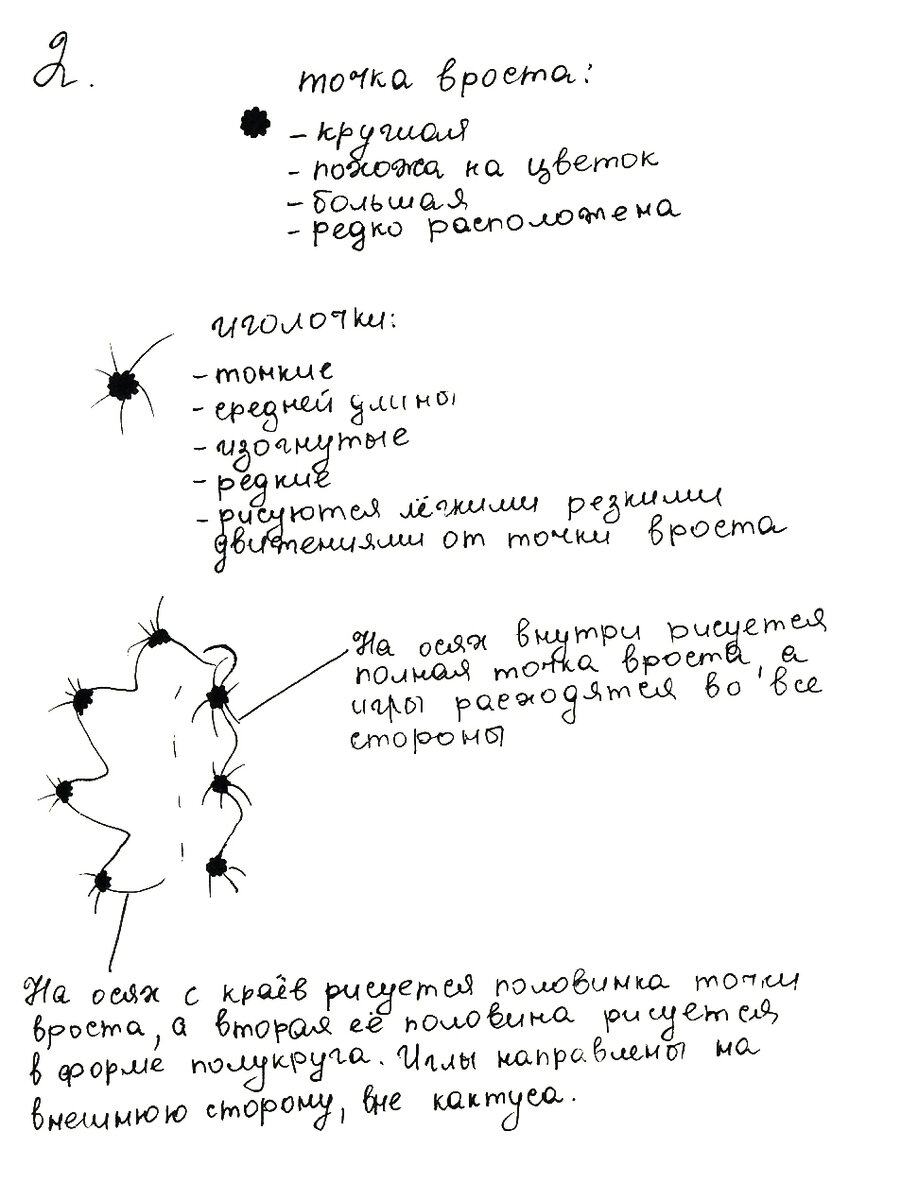 2.
точка вроста:
- круглая
- похожа на цветок
- большая
- редко расположена
иголочки:
- тонкие
- средней длины
- изогнутые
- редкие
- рисуются лёгкими резкими
движениями от точки вроста
На осях внутри рисуется
полная точка вроста, а
игры расходятся во все
стороны
На осях с краёв рисуется половинка точки
вроста, а вторая её половина рисуется
в форме полукруга. Иглы направлены на
внешнюю сторону, вне кактуса.